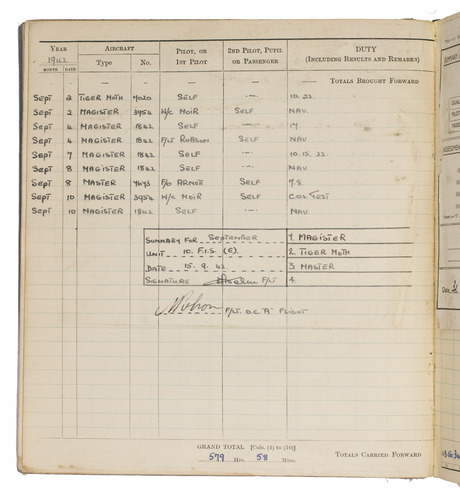 YEAR AIRCRAFT PILOT, OR 1ST PILOT 2ND PILOT, PUPIL OR PASSENGER DUTY (INCLUDING RESULTS AND REMARKS)
1942
MONTH DATE Type No.
— — — TOTALS BROUGHT FORWARD
SEPT 2 TIGER MOTH SELF — 10. 22.
SEPT 2 MAGISTER W/C MOIR SELF NAV.
SEPT 4 MAGISTER 1842 SELF —
SEPT 4 MAGISTER 1842 F/LT ROBSON SELF NAV
SEPT 7 MAGISTER 1842 SELF — 10. 15. 22.
SEPT 8 MAGISTER 1842 SELF — NAV.
SEPT 8 MASTER F/O ARNOTT SELF 7.8.
SEPT 10 MAGISTER W/C MOIR SELF TEST
SEPT 10 MAGISTER 1842 SELF — NAV.
SUMMARY FOR SEPTEMBER 1. MAGISTER
UNIT 10. F.I.S. (E). 2. TIGER MOTH
DATE 15. 9. 42. 3. MASTER
SIGNATURE F/LT 4.
F/LT. O.C. "A" FLIGHT
GRAND TOTAL [Cols. (1) to (10)]
579 Hrs. 58 Mins. TOTALS CARRIED FORWARD